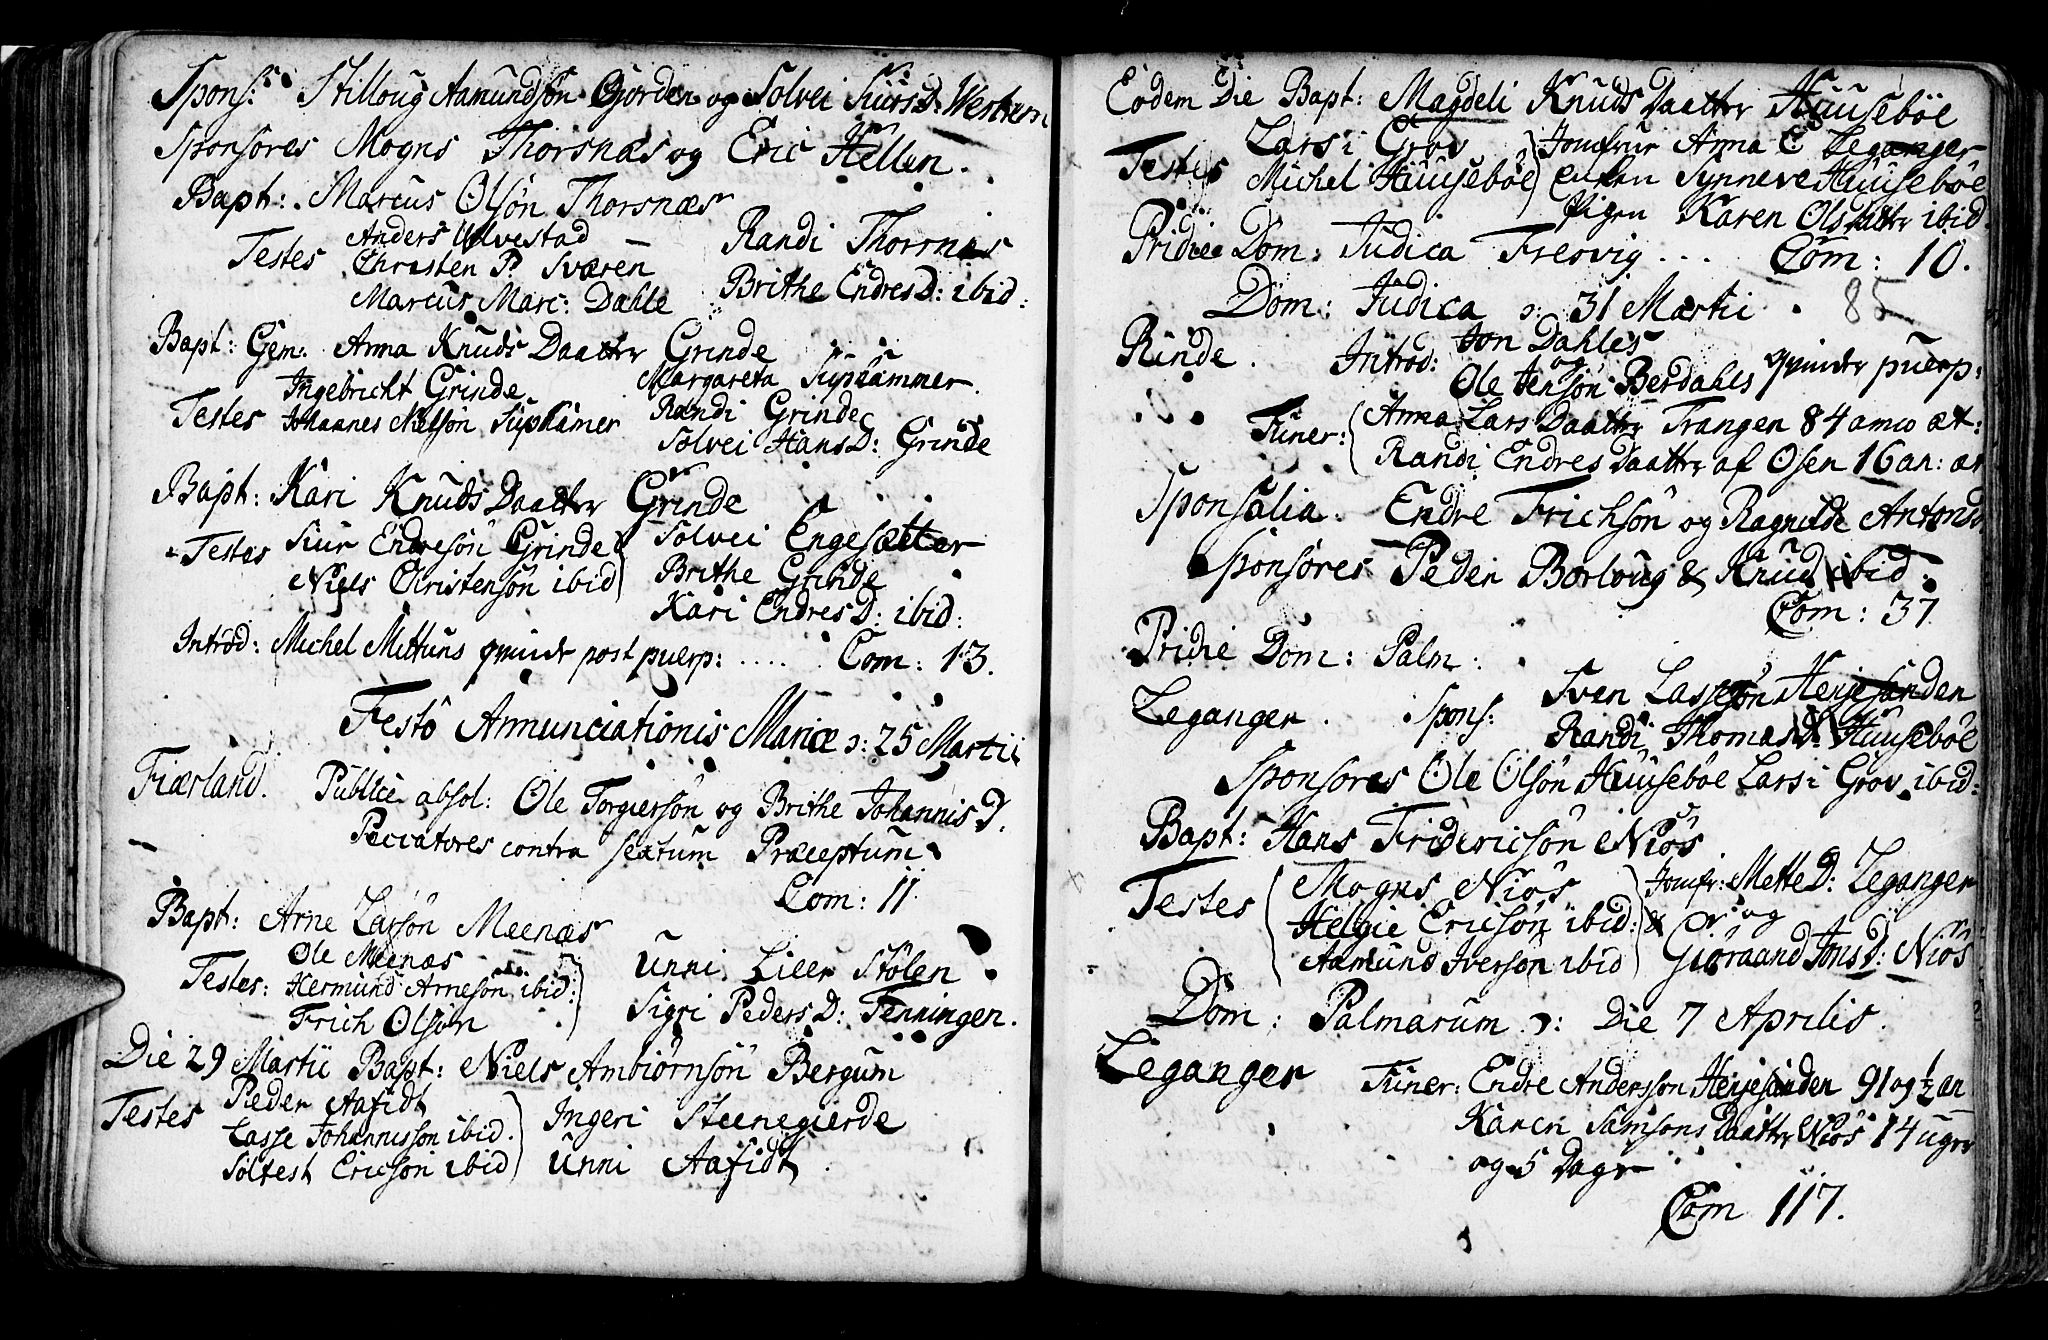 Spons: Stilloug Aamundsøn Gjorden og Solvei Siurs D: Werken
Sponsores Mogns Thorsnæs og Eric Hellen.
Bapt: Marcus Olsøn Thorsnæs
Anders Ulvestad
Testes Christen P. Sværen
Marcus Marc: Dahle
Randi Thorsnæs
Brithe Endres D: ibid:
Bapt: Gem: Anna Knuds Daatter Grinde
Ingebricht Grinde
Testes Johannes Nielsøn Suphamer
Margareta Suphammer.
Randi Grinde
Solvei Hans D: Grinde
Bapt: Kari Knuds Daatter Grinde
Testes Siur Endresøn Grinde
Niels Christensøn ibid
Solvei Engesætter
Brithe Grinde
Kari Endres D: ibid:
Introd: Michel Mittuns qvinde post puerp: .... Com: 13.
Festo Annunciationis Mariæ ɔ: 25 Martii
Fiærland. Publice absol: Ole Torgiersøn og Brithe Johannis D.
Peccatores contra sextum Præceptum
Com: 11.
Bapt: Arne Larsøn Meenæs
Ole Meenæs
Testes: Hermund Arnesøn ibid:
Frich Olsøn
Unni Lien Stølen
Sigri Peders D: Fenningen.
Die 29 Martii Bapt: Niels Ambiørnsøn Bergum
Testes Peder Aafidt
Lasse Johannissøn ibid.
Solfest Ericsøn ibid
Ingeri Steenegierde
Unni Aafidt
Eodem Die Bapt: Magdeli Knuds Daatter Huusebøe
Testes Lars i Grov
Michel Huusebøe
Jomfrur Anna C Leganger
Enken Synneve Huusebøe
Pigen Karen Olsdatter ibid
Pridie Dom: Judica Fresvig ... Com: 10.
Dom: Judica ɔ: 31 Martii. 85
Rinde. Introd: Jon Dahles
og
Ole Jensøn Berdahls qvinder puerp:
Funer: Anna Lars Daatter Trangen 84 anno æt:
Randi Endres Daatter af Osen 16 an: æt
Sponsalia. Endre Frichsøn og Ragnilde Antons D
Sponsores Peder Borloug & Knud ibid.
Com: 37
Pridie Dom: Palm:
Leganger. Spons: Sven Lassesøn Henjesanden
Randi Thomas D: Huusebøe
Sponsores Ole Olsøn Huusebøe Lars i Grov ibid:
Bapt: Hans Fridericsøn Niøs
Testes Mogns Niøs
Helgie Ericsøn ibid: &
Aamund Iversøn ibid
Jomfr: Mette D: Leganger
og
Giøraand Jons D: Niøs
Dom: Palmarum ɔ: Die 7 Aprilis.
Leganger Funer: Endre Andersson Henjesanden 91 og ½ an
Karen Samsons Daatter Niøs 14 uger
og 5 Dage
Com 117.